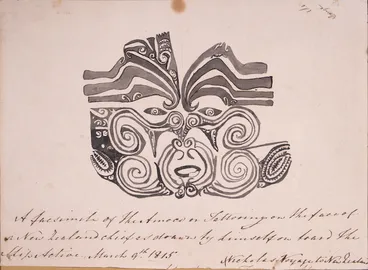 A facsimile of the Amoco or Tattooing on the face of
a New Zealand chief as drawn by himself on board the
Ship Active. March 9th 1815
Nicholas's Voyage to New Zealand